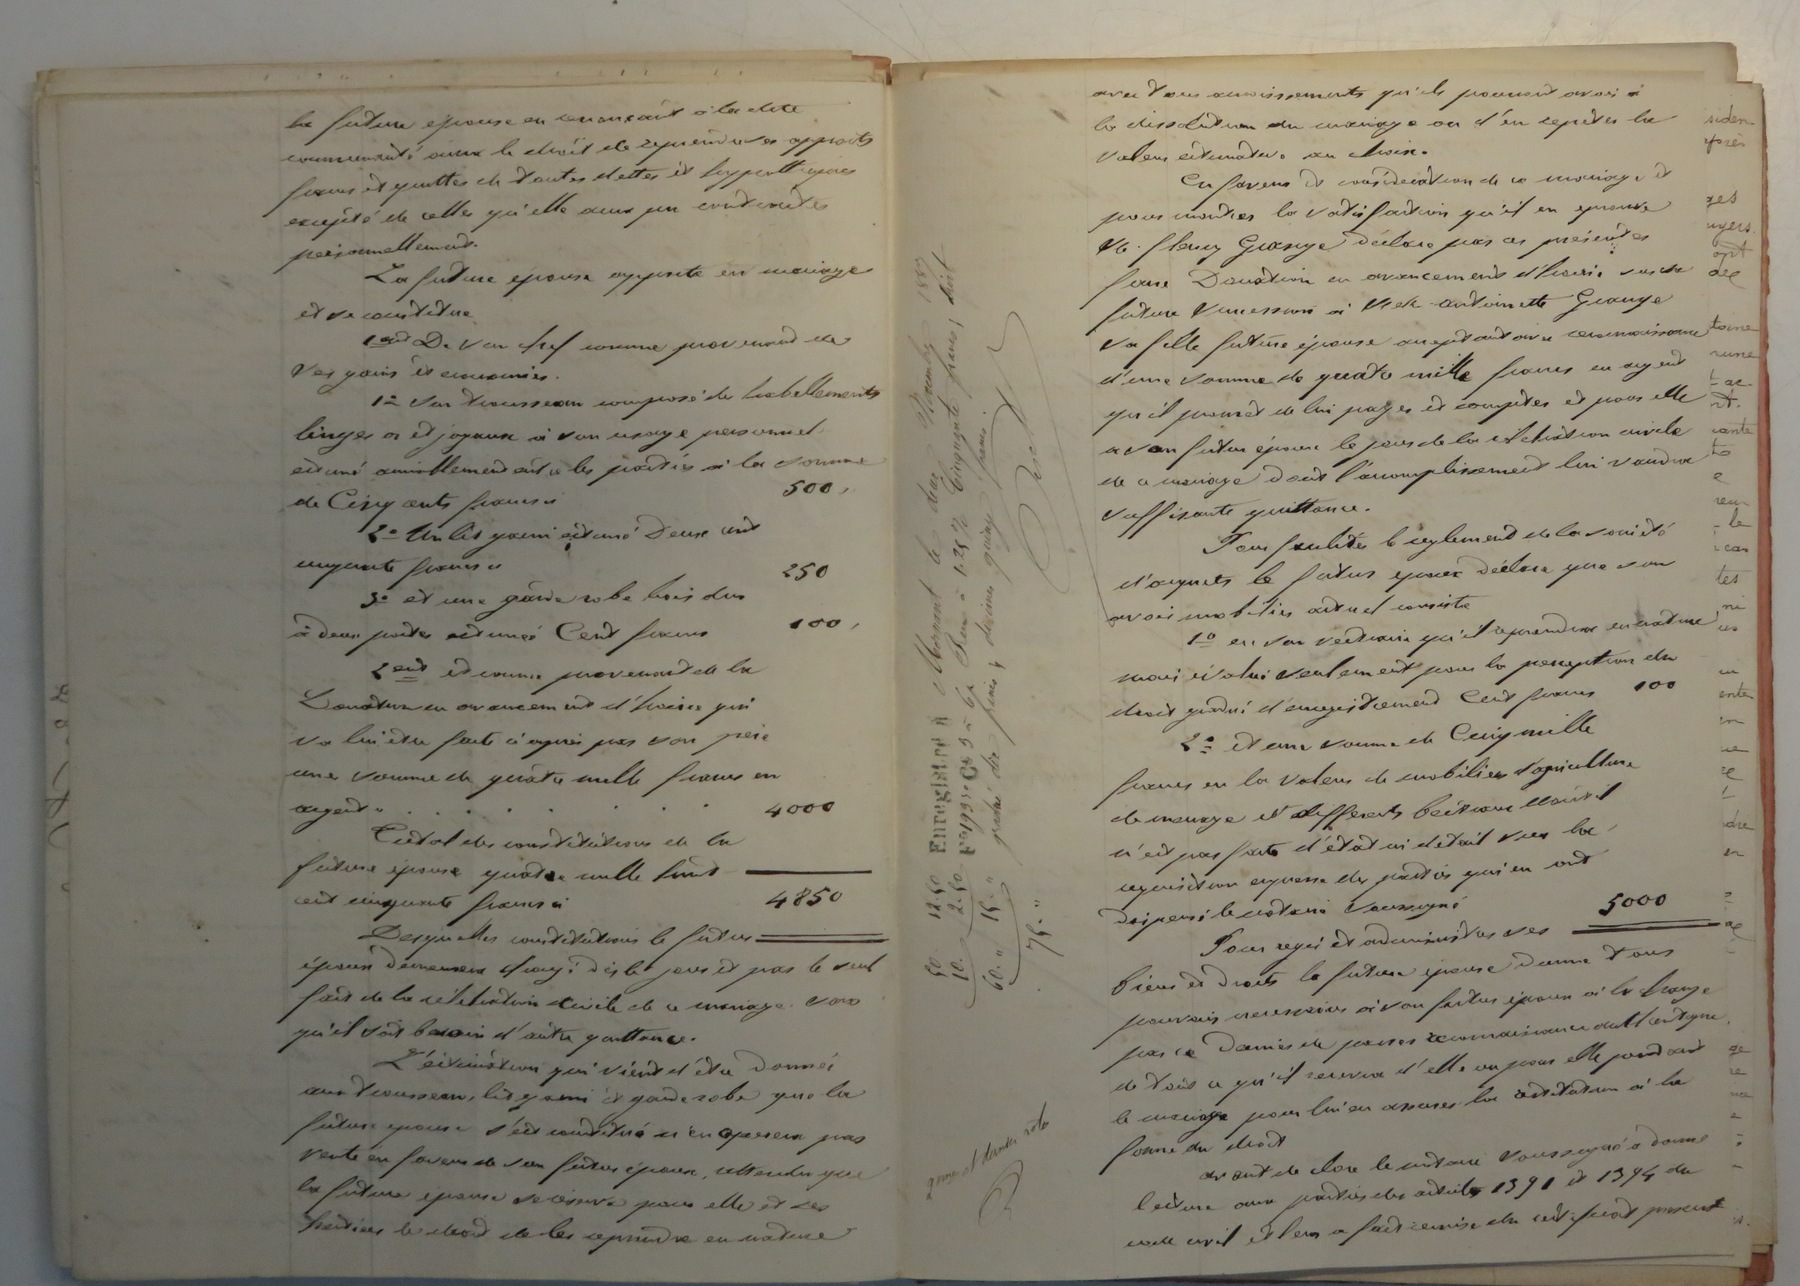 la future épouse en renonçant à la dite
communauté aura le droit de reprendre ses apports
francs et quittes de toutes dettes et hypothèques
excepté de celles qu'elle aura pu contracter
personnellement.
La future épouse apporte en mariage
et se constitue
1ent De son chef comme provenant de
ses gains et économies.
1° Son trousseau composé de habillements
linges or et joyaux à son usage personnel
estimé amiablement entre les parties à la somme
de Cinq cents francs ci 500,
2° Un lit garni estimé Deux cent
cinquante francs ci 250
3° et une garde robe bois dur
à deux portes estimée Cent francs 100,
2ent et comme provenant de la
Donation en avancement d'hoirie qui
va lui être faite ci après par son père
une somme de quatre mille francs en
argent " . . . . . 4000
Total des constitutions de la
future épouse quatre mille huit
cent cinquante francs ci 4850
Desquelles constitutions le futur
époux demeurera chargé dès le jour et par le seul
fait de la célébration civile de ce mariage sans
qu'il soit besoin d'autre quittance.
L'estimation qui vient d'être donnée
aux trousseau, lit garni et garde robe que la
future épouse s'est constitué n'en opérera pas
vente en faveur de son futur époux, attendu que
la future épouse se réserve pour elle et ses
héritiers le droit de les reprendre en nature
Enregistré à Mornant le deux Novembre 1887
F° 199 v° Cs 5 à 6 Reçu à 1.25 % Cinquante francs, droit
gradué dix francs, décimes quinze francs
50 12.50
10. 2.50
60. " 15. "
75. "
avec tous accroissements qu'ils pourront avoir à
la dissolution du mariage ou d'en répéter la
valeur estimative au choix.
En faveur et considération de ce mariage et
pour montrer la satisfaction qu'il en éprouve
M. Fleury Grange déclare par ces présentes
faire Donation en avancement d'hoirie sur sa
future succession à Melle Antoinette Grange
sa fille future épouse acceptant avec reconnaissance
d'une somme de quatre mille francs en argent
qu'il promet de lui payer et compter et pour elle
à son futur époux le jour de la célébration civile
de ce mariage dont l'accomplissement lui vaudra
suffisante quittance.
Pour faciliter le règlement de la société
d'acquets le futur époux déclare que son
avoir mobilier actuel consiste
1° en son vestiaire qu'il reprendra en nature
mais évalué seulement pour la perception du
droit gradué d'enregistrement Cent francs 100
2° et une somme de Cinq mille
francs en la valeur de mobilier d'agriculture
de ménage et différents bestiaux dont il
n'est pas fait d'état ni détail sur la
réquisition expresse des parties qui en ont
dispensé le notaire soussigné 5000
Pour régir et administrer ses
biens et droits la future épouse donne tous
pouvoirs nécessaires à son futur époux à la charge
par ce dernier de passer reconnaissance authentique
de tout ce qu'il recevra d'elle ou pour elle pendant
le mariage pour lui en assurer la restitution à la
forme du droit
Avant de clore le notaire soussigné a donné
lecture aux parties des articles 1391 et 1394 du
code civil et leur a fait remise du certificat prescrit